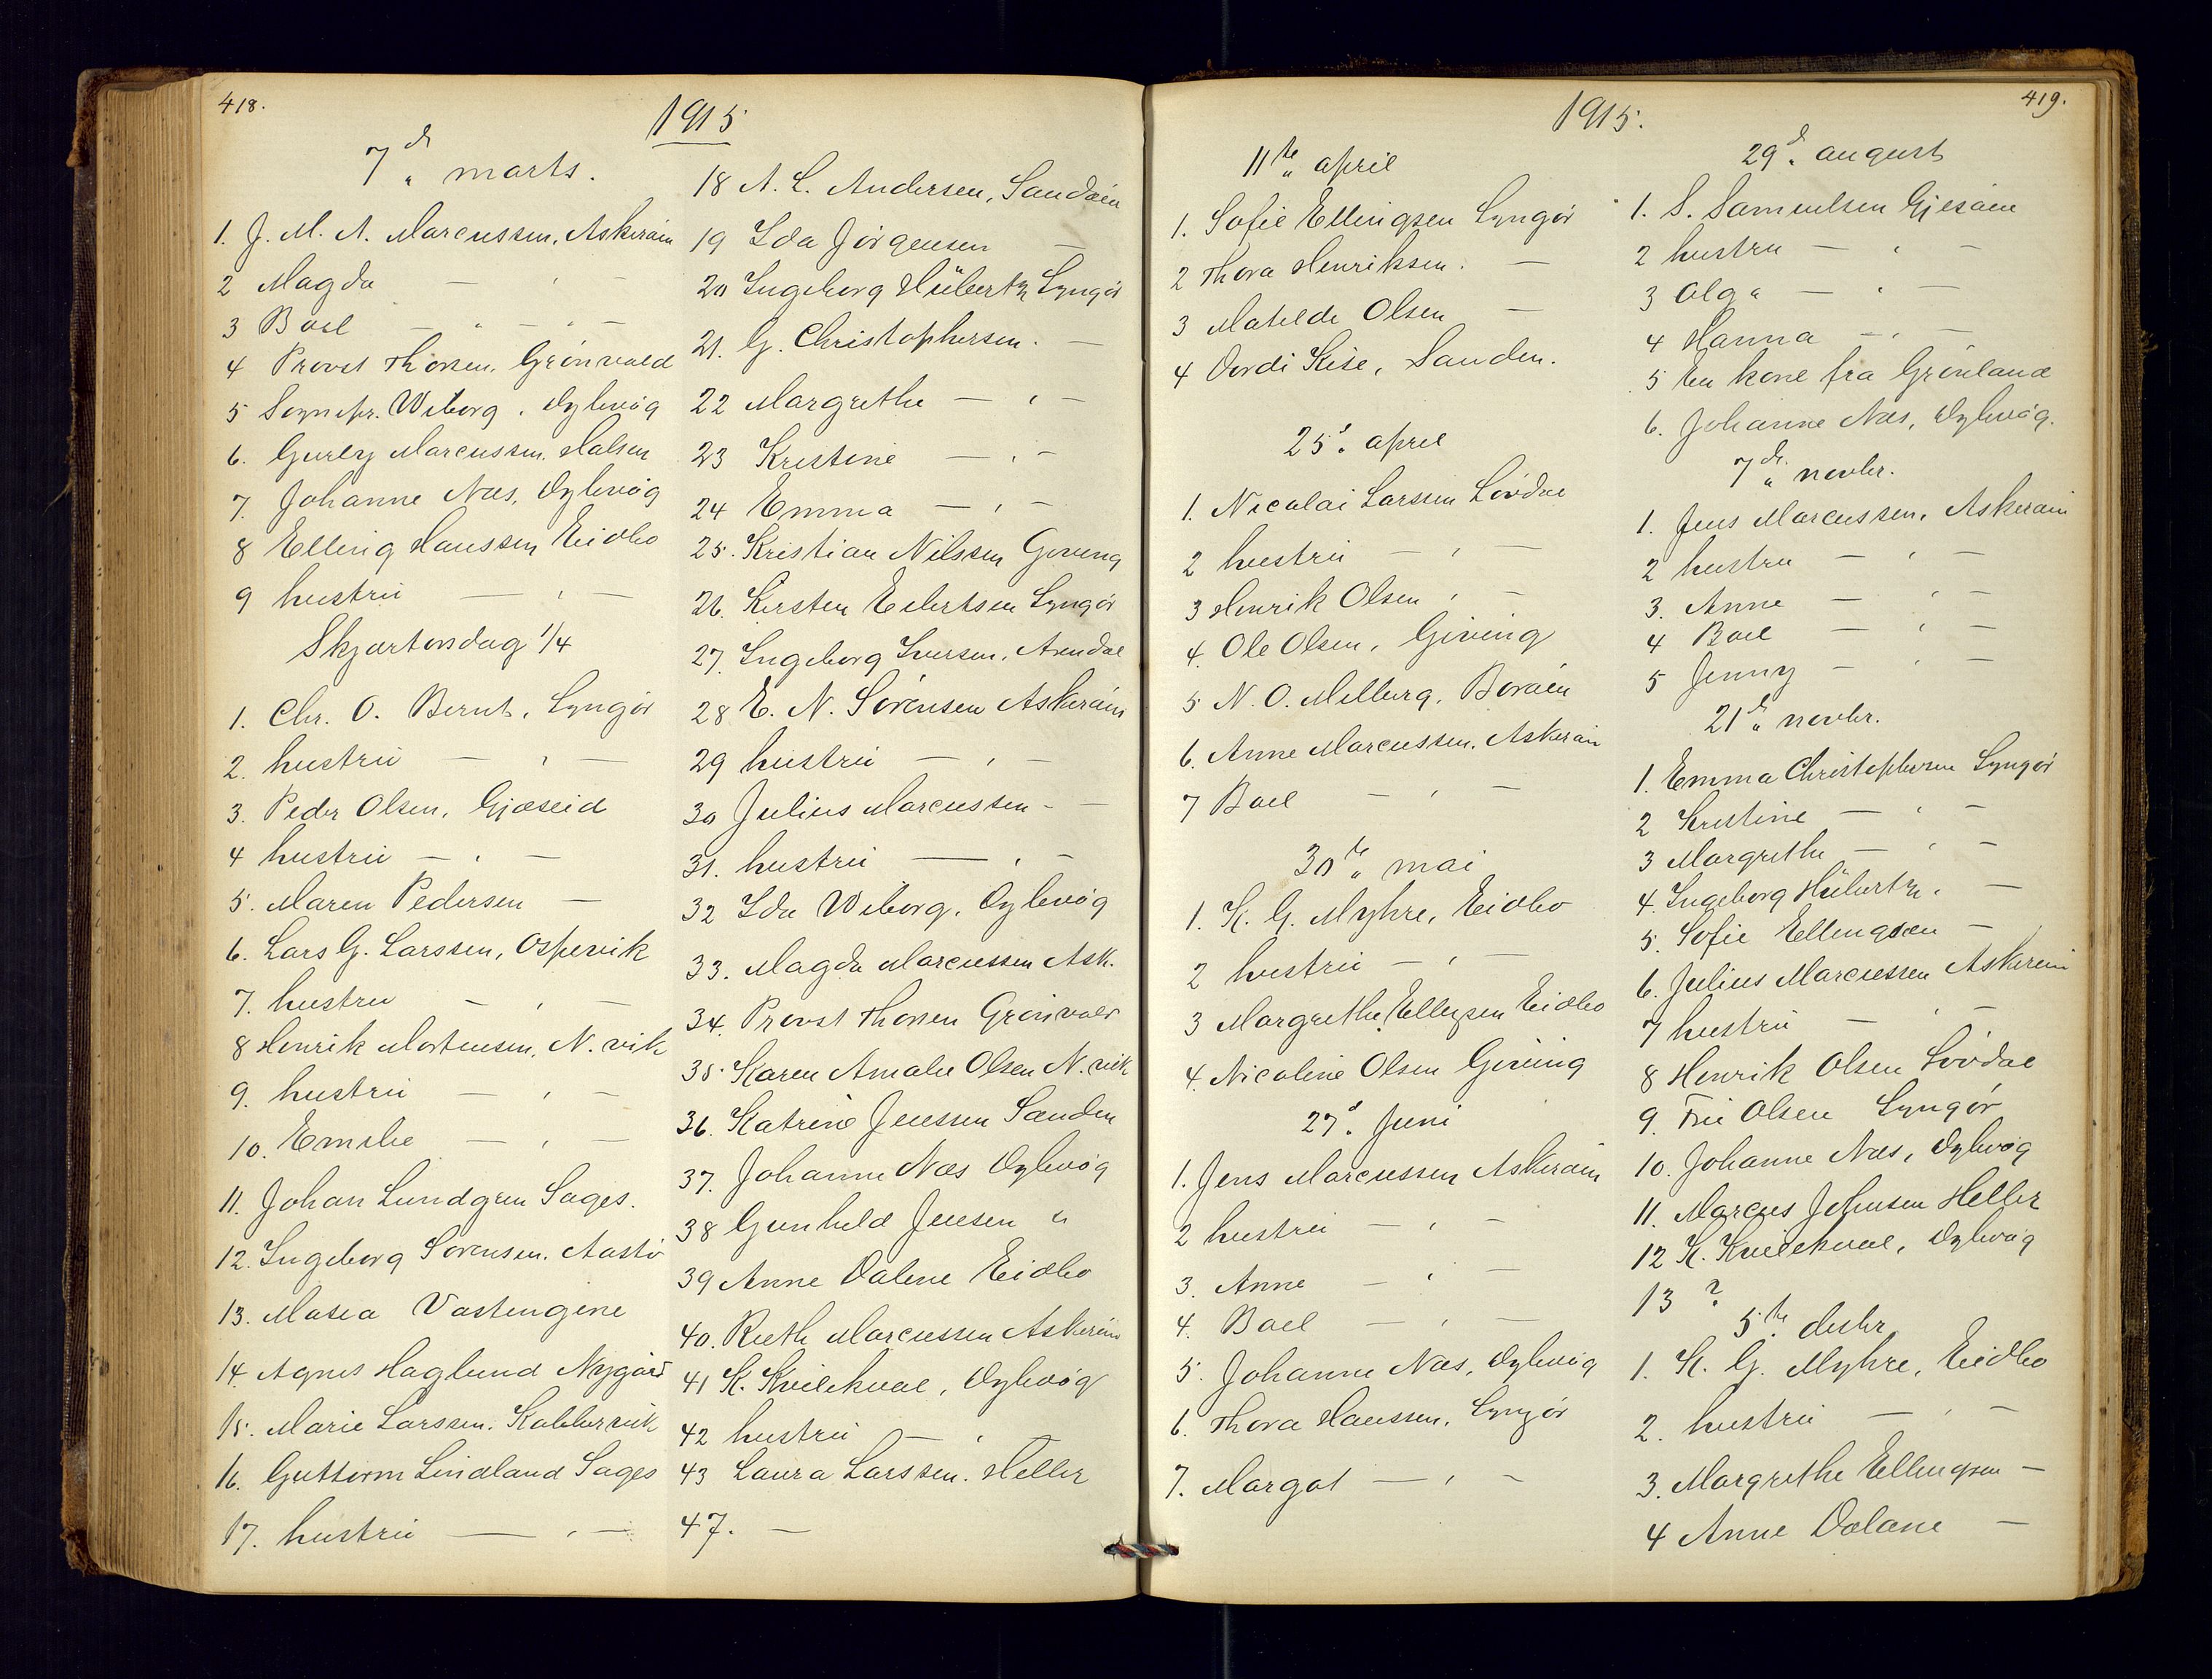 418.
1915
7de marts.
1. J. M. A. Marcussen, Askerøien
2 Magda — " —
3 Boel — " — " —
4 Provst Thorsen, Grönvold
5 Sognepr. Wiborg, Dybvåg
6. Gurly Marcussen, Halsen
7. Johanne Næs, Dybvåg
8 Elling Hanssen Eidbo
9 hustru — " —
Skjærtorsdag 1/4
1. Chr. O. Bernts, Lyngør
2. hustru — " —
3. Peder Olsen, Gjæseid
4 hustru — " —
5. Maren Pedersen —
6. Lars G. Larssen, Ospevik
7. hustru — " —
8 Henrik Mortensen, N. vik
9. hustru — " —
10. Emilie — " —
11. Johan Lundgren Sages.
12. Ingeborg Sørensen, Aastø
13. Masia Vastengene
14. Agnes Haglund Nygård
15. Marie Larssen, Kaldervik
16. Guttorm Lindland Sages
17. hustru — " —
18 A. L. Andersen, Sandøien
19 Ida Jörgensen —
20 Ingeborg Hübertz Lyngør
21. G. Christophersen. —
22 Margrethe — " —
23 Kristine — " —
24 Emma — " —
25. Kristian Nilssen Goveng
26. Kirsten Eilertsen Lyngør
27. Ingeborg Iversen, Arendal
28 E. N. Sörensen Askerøien
29 hustru — " —
30 Julius Marcussen - —
31. hustru — " —
32 Ida Wiborg, Dybvåg
33. Magda Marcussen Ask.
34. Provst Thorsen Grönvold
35. Karen Amalie Olsen N. vik
36. Katrine Jenssen Sanden
37. Johanne Næs Dybvåg
38 Gunhild Jensen "
39 Anne Dalene Eidbo
40. Ruth Marcussen Askerøien
41 K. Kvilekval, Dybvåg
42 hustru — " —
43 Laura Larssen. Heller
47. —
419.
1915.
11te april
1. Sofie Ellingsen Lyngør
2 Thora Henriksen. —
3 Matilde Olsen —
4 Dordi Kise, Sanden.
25de april
1. Nicolai Larssen Lövdal
2 hustru — " —
3 Henrik Olsen " —
4. Ole Olsen, Giving
5 N. O. Melberg, Borøien
6. Anne Marcussen, Askerøien
7 Boel — " —
30te mai
1. K. G. Myhre, Eidbo
2 hustru — " —
3 Margrethe Ellingsen Eidbo
4. Nicoline Olsen Giving
27de Juni
1. Jens Marcussen Askerøien
2 hustru — " —
3. Anne — " —
4. Boel — " —
5. Johanne Næs, Dybvåg
6. Thora Hanssen, Lyngør
7. Margot — " —
29de august
1. S. Samuelsen Gjesøien
2 hustru — " —
3 Olga — " —
4 Hanna — " —
5 En kone fra Grönland
6. Johanne Næs, Dybvåg.
7de novbr.
1. Jens Marcussen, Askerøien
2 hustru — " —
3. Anne — " —
4 Boel — " —
5 Jenny — " —
21de novbr.
1. Emma Christophersen Lyngør
2 Kristine — " —
3 Margrethe — " —
4. Ingeborg Hübertz. —
5. Sofie Ellingsen —
6. Julius Marcussen Askerøien
7 hustru — " —
8 Henrik Olsen Lövdal
9. Fru Olsen Lyngør
10. Johanne Næs, Dybvåg
11. Marcus Johnsen Heller
12 K. Kvilekval, Dybvåg
13 ?
5te decbr
1. K. G. Myhre, Eidbo
2. hustru — " —
3. Margrethe Ellingsen —
4 Anne Dalane —